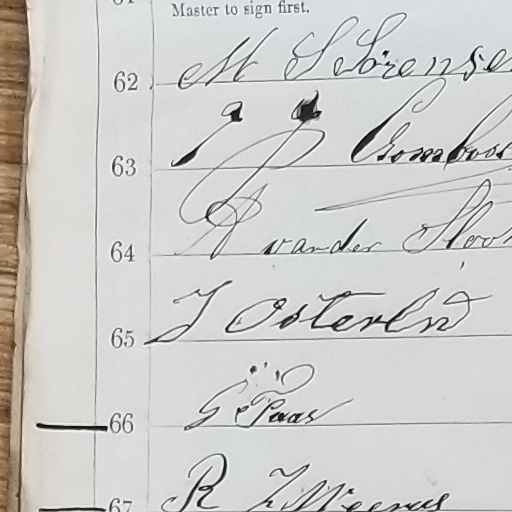 Master to sign first.
62 M S Sörense
63 J J Crombos
64 A vander Sloo
65 J Osterlind
66 G Paas
67 R